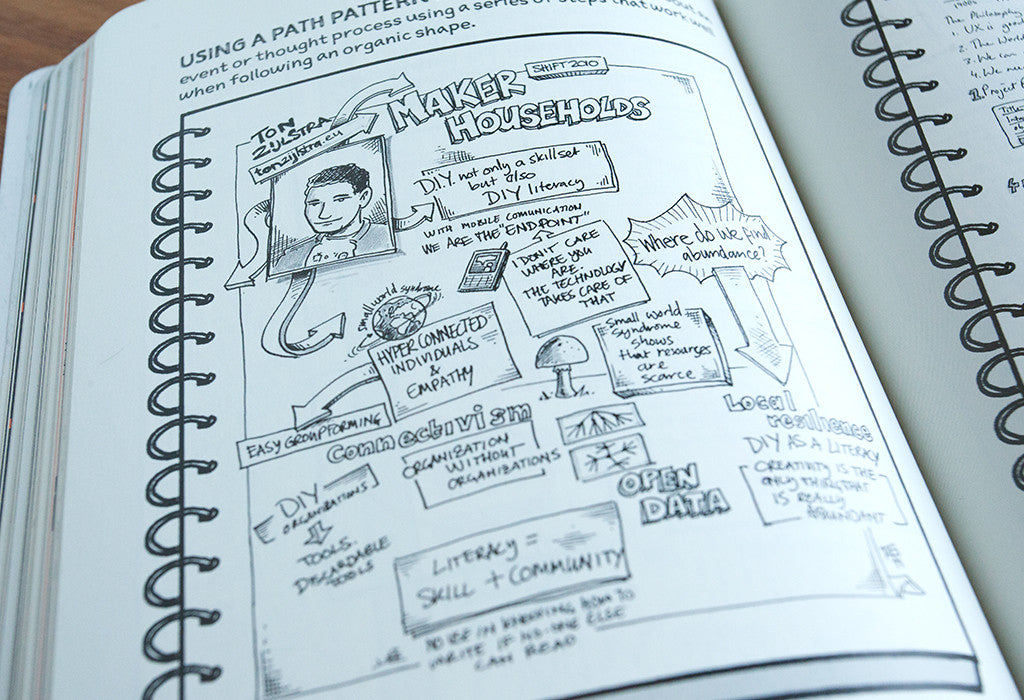 USING A PATH PATTERN
event or thought process using a series of steps that work
when following an organic shape.
SHIFT 2010
MAKER
HOUSEHOLDS
TON
ZIJLSTRA
tonzijlstra.eu
D.I.Y. not only a skillset
but also
DIY literacy
WITH MOBILE COMUNICATION
WE ARE THE "ENDPOINT"
I DON'T CARE
WHERE YOU
ARE.
THE TECHNOLOGY
TAKES CARE OF
THAT
Where do we find
abundance?
small world syndrome
HYPERCONNECTED
INDIVIDUALS
&
EMPATHY
small world
syndrome
shows
that resources
are
scarce
EASY GROUPFORMING
Connectivism
ORGANIZATION
WITHOUT
ORGANIZATIONS
Local
resilience
DIY AS A LITERACY
CREATIVITY IS THE
ONLY THING THAT
IS REALLY
ABUNDANT
DIY
ORGANIZATIONS
TOOLS.
DISCARDABLE
TOOLS
OPEN
DATA
LITERACY =
SKILL + COMMUNITY
NO USE IN KNOWING HOW TO
WRITE IF NO-ONE ELSE
CAN READ
The Philosophy
1. UX is
2. The World
3. We can
4. We
Project